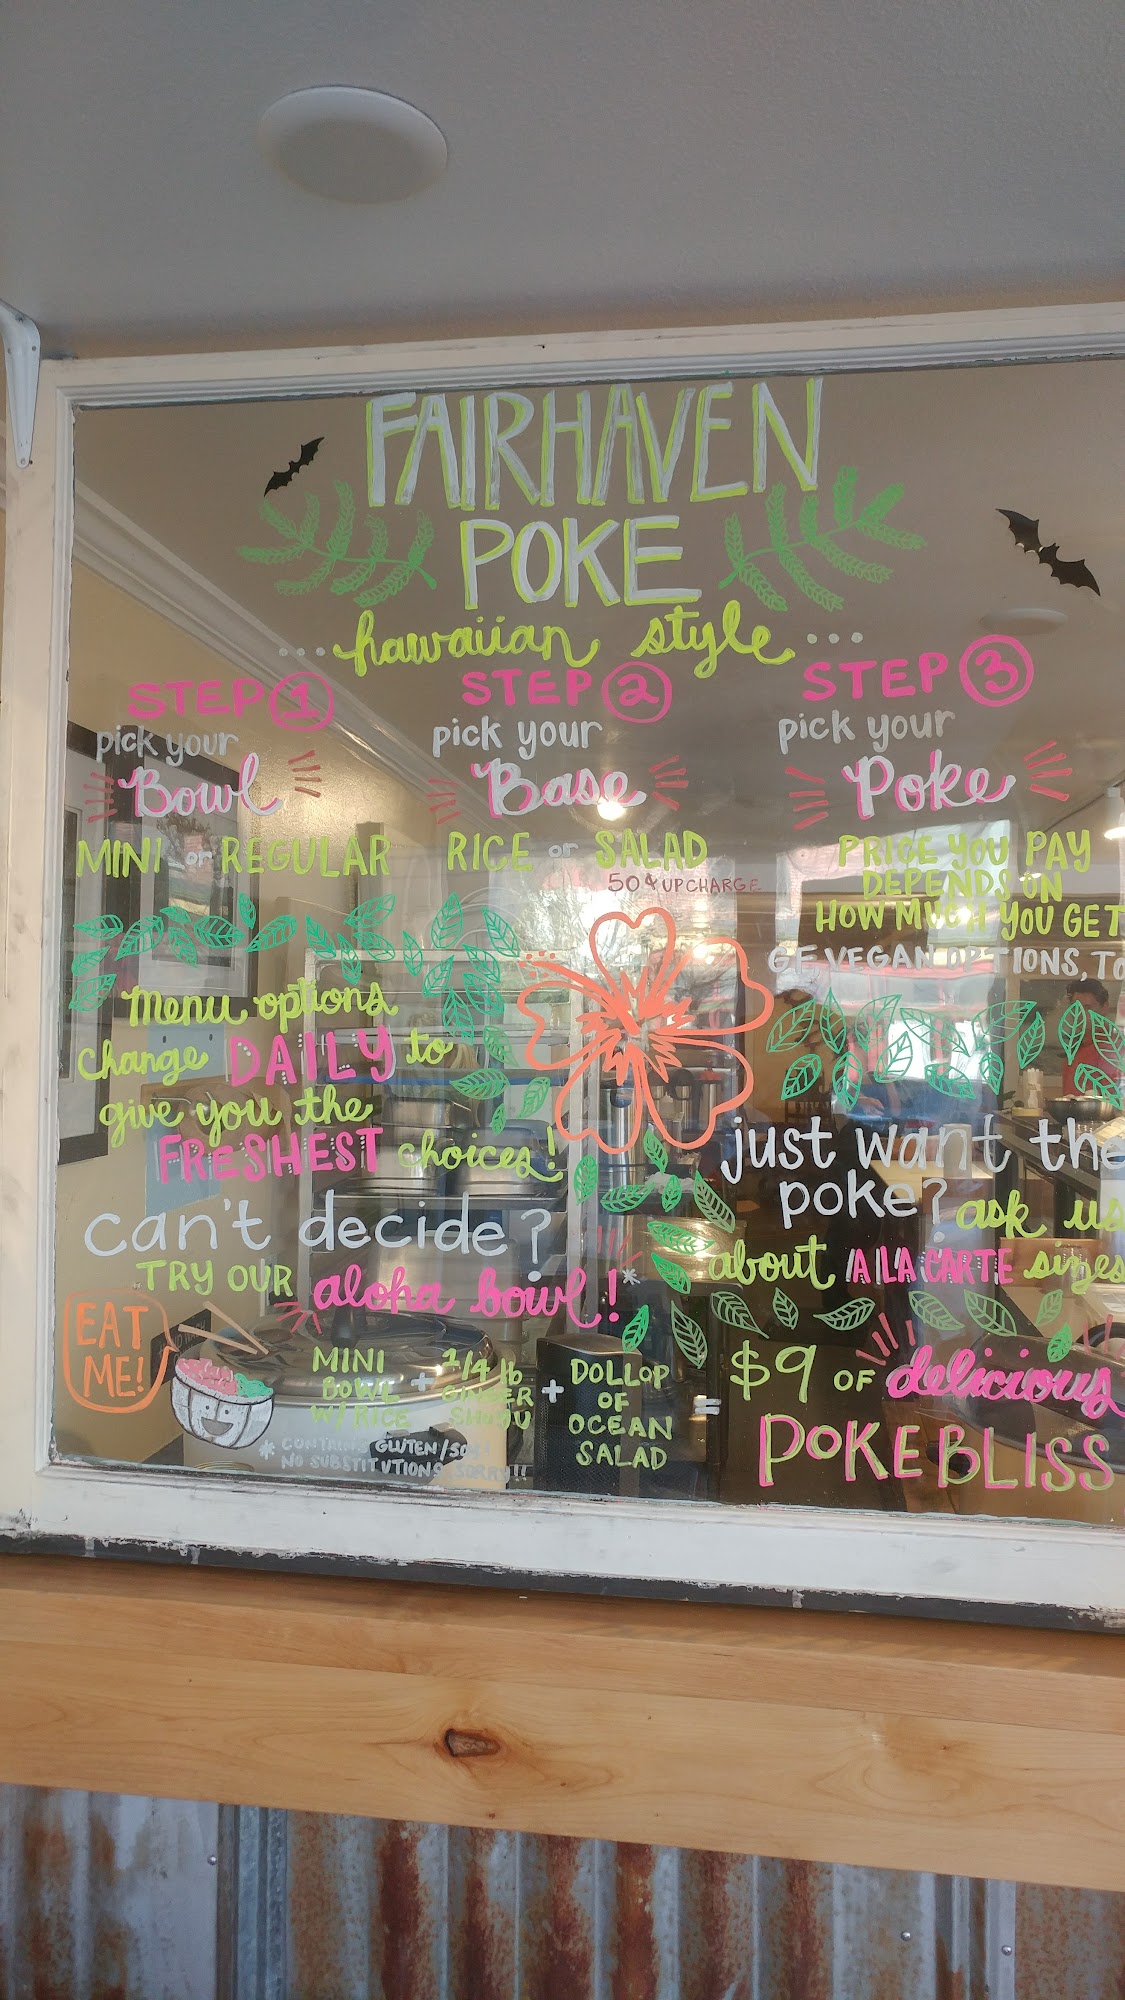 FAIRHAVEN
POKE
...hawaiian style...
STEP 1
pick your
Bowl
MINI or REGULAR
STEP 2
pick your
Base
RICE or SALAD
50¢ UPCHARGE
STEP 3
pick your
Poke
PRICE YOU PAY
DEPENDS ON
HOW MUCH YOU GET
GF VEGAN OPTIONS, TO
Menu options
change DAILY to
give you the
FRESHEST choices!
can't decide?
TRY OUR aloha bowl!*
EAT
ME!
MINI
BOWL
W/ RICE
+
1/4 lb
GINGER
SHOYU
+
DOLLOP
OF
OCEAN
SALAD
* CONTAINS GLUTEN/SOY!
NO SUBSTITUTIONS, SORRY!!
just want the
poke? ask us
about A LA CARTE sizes
$9 OF delicious
POKE BLISS